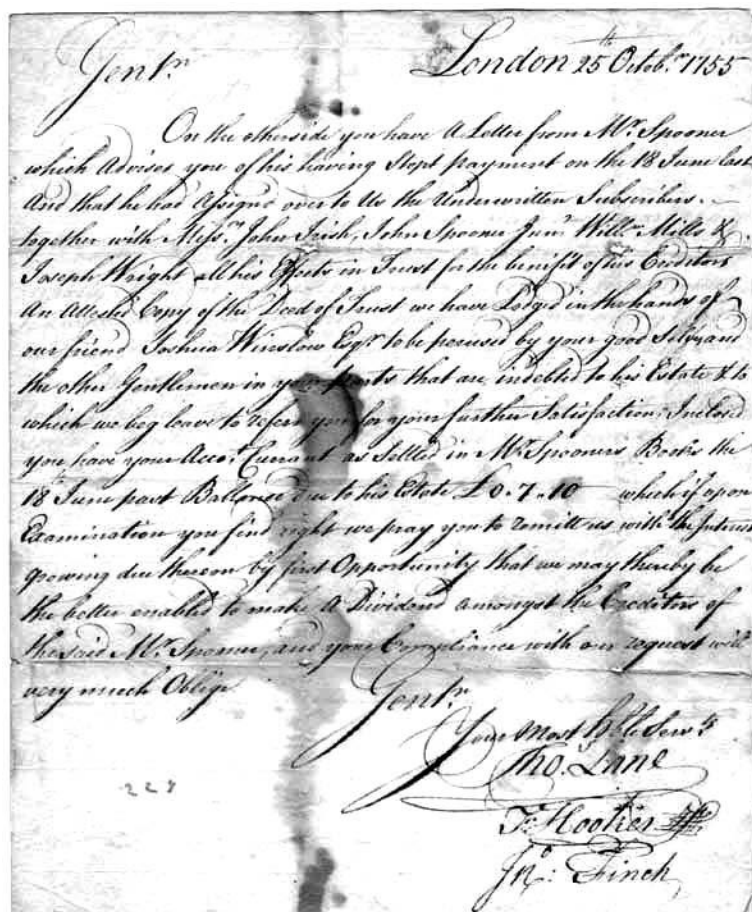 Gentn. London 25th Octobr. 1755
On the otherside you have A Letter from Mr. Spooner
which Advises you of his having Stopt payment on the 18 June last
And that he had Assign'd over to Us the Underwritten Subscribers.
together with Messrs. John Irish, John Spooner Junr. Willm. Mills &
Joseph Wright all his Effects in Trust for the benifit of his Creditors
An Attested Copy of the Deed of Trust we have Lodged in the hands of
our friend Joshua Winslow Esqr. to be perused by your good Selves and
the other Gentlemen in your parts that are indebted to his Estate & to
which we beg leave to refer you for your further Satisfaction. Inclosed
you have your Acco.t Currant as Settled in Mr. Spooners Books the
18th June past Ballance due to his Estate £0.7.10 which if upon
Examination you find right we pray you to remitt us with the Interest
growing due thereon by first Opportunity that we may thereby be
the better enabled to make A Dividend amongst the Creditors of
the said Mr. Spooner, and your Compliance with our request will
very much Oblige
Gentn.
Your Most hble Servts
Tho.s Lane
Jn.o Finch
228